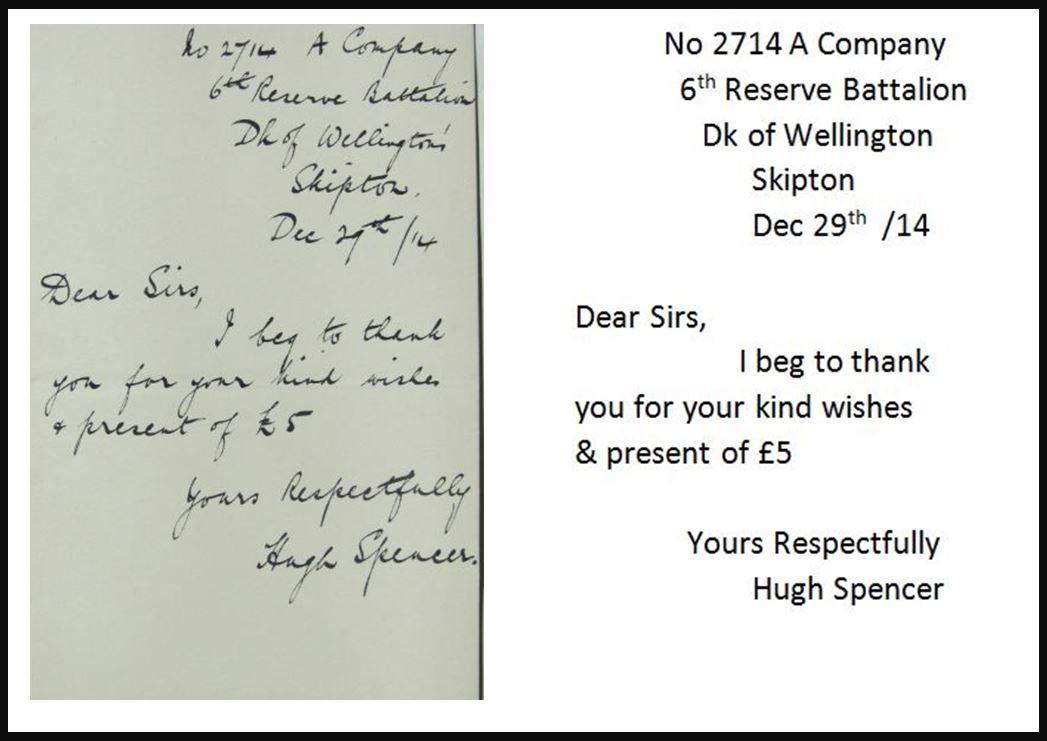 No 2714 A Company
6th Reserve Battalion
Dk of Wellington's
Skipton.
Dec 29th /14
Dear Sirs,
I beg to thank
you for your kind wishes
& present of £5
Yours Respectfully
Hugh Spencer.
No 2714 A Company
6th Reserve Battalion
Dk of Wellington
Skipton
Dec 29th /14
Dear Sirs,
I beg to thank
you for your kind wishes
& present of £5
Yours Respectfully
Hugh Spencer